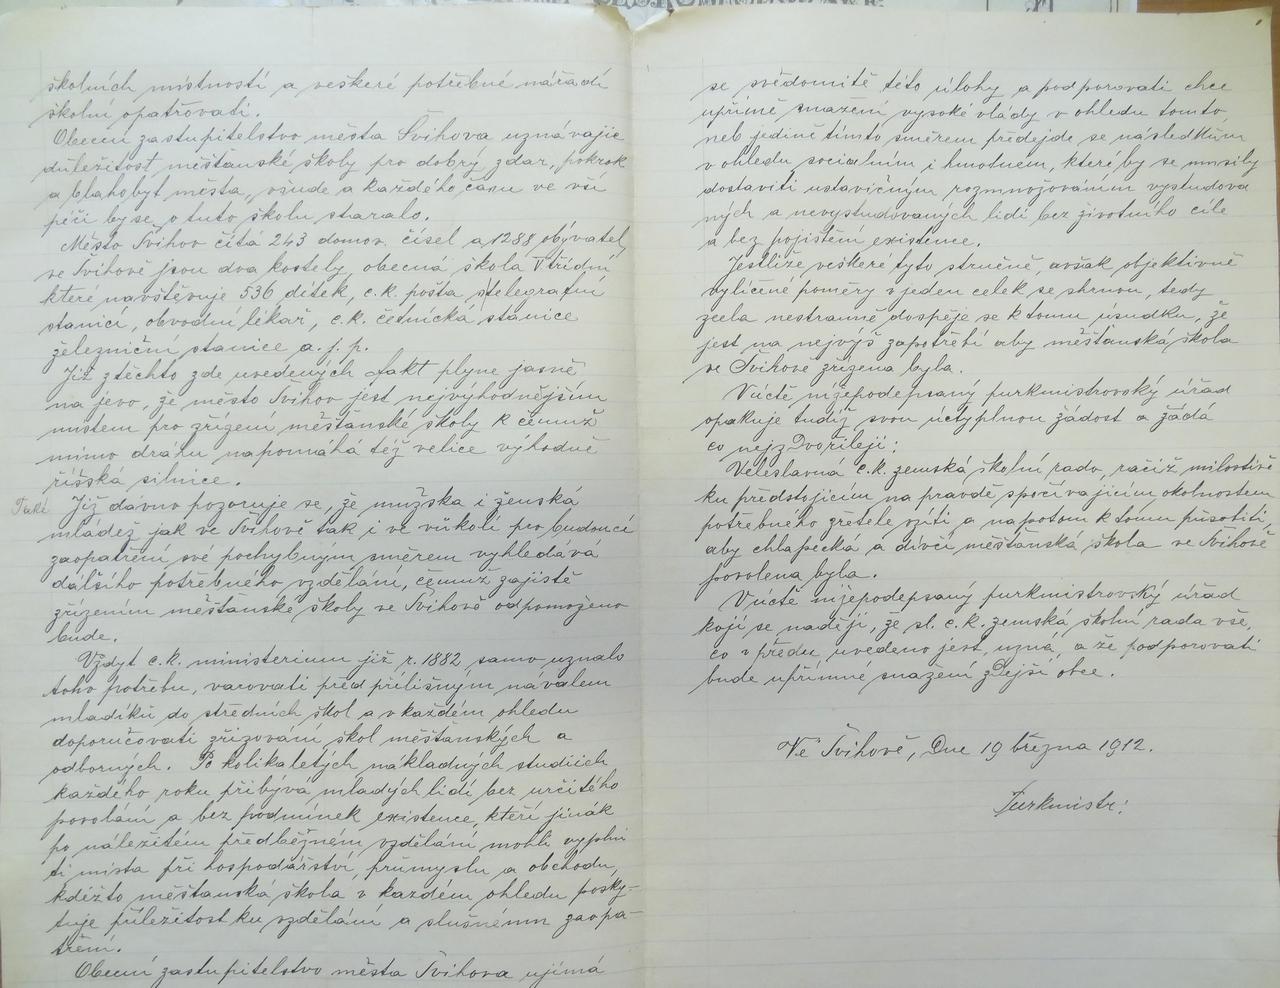 školních místností a veškeré potřebné nářadí
školní opatřovati.
Obecní zastupitelstvo města Švihova uznávajíc
důležitost měšťanské školy pro dobrý zdar, pokrok
a blahobyt města, všude a každého času ve vší
péči by se o tuto školu staralo.
Město Švihov čítá 243 domov. čísel a 1288 obyvatel,
ve Švihově jsou dva kostely, obecná škola V třídní
které navštěvuje 536 dítek, c. k. pošta s telegrafní
stanicí, obvodní lékař, c. k. četnická stanice
železniční stanice a. j. p.
Již z těchto zde uvedených fakt plyne jasně
na jevo, že město Švihov jest nejvýhodnějším
místem pro zřízení měšťanské školy k čemuž
mimo dráhu napomáhá též velice výhodně
říšská silnice.
Také Již dávno pozoruje se, že mužská i ženská
mládež jak ve Švihově tak i ve vůkolí pro budoucí
zaopatření své pochybným směrem vyhledává
dalšího potřebného vzdělání, čemuž zajisté
zřízením měšťanské školy ve Švihově odpomoženo
bude.
Vždyť c. k. ministerium již r. 1882 samo uznalo
toho potřebu, varovati před přílišným návalem
mladíků do středních škol a v každém ohledu
doporučovati zřizování škol měšťanských a
odborných. Po kolikaletých nákladných studiích
každého roku přibývá mladých lidí bez určitého
povolání a bez podmínek existence, kteří jinák
po náležitém předběžném vzdělání mohli vyplni
ti místa při hospodářství, průmyslu a obchodu,
kdežto měšťanská škola v každém ohledu posky-
tuje příležitost ku vzdělání a slušnému zaopa-
tření.
Obecní zastupitelstvo města Švihova ujímá
se svědomitě této úlohy a podporovati chce
upřímé snažení vysoké vlády v ohledu tomto,
neb jedině tímto směrem předejde se následkům
v ohledu sociálním i hmotném, které by se musily
dostaviti ustavičným rozmnožováním vystudova
ných a nevystudovaných lidí bez životního cíle
a bez pojištění existence.
Jestliže veškeré tyto stručně, avšak objektivně
vylíčené poměry v jeden celek se shrnou, tedy
zcela nestranně dospěje se k tomu úsudku, že
jest na nejvýš zapotřebí aby měšťanská škola
ve Švihově zřízena byla.
V úctě nížepodepsaný purkmistrovský úřad
opakuje tudíž svou úctyplnou žádost a žádá
co nejzdvořileji:
Veleslavná c. k. zemská školní rado, račiž milostivě
ku předstojícím na pravdě spočívajícím okolnostem
potřebného zřetele vzíti a napotom k tomu působiti,
aby chlapecká a dívčí měšťanská škola ve Švihově
povolena byla.
V úctě nížepodepsaný purkmistrovský úřad
kojí se nadějí, že sl. c. k. zemská školní rada vše,
co v předu uvedeno jest, uzná, a že podporovati
bude upřímné snažení zdejší obce.
Ve Švihově, dne 19 března 1912.
Purkmistr: